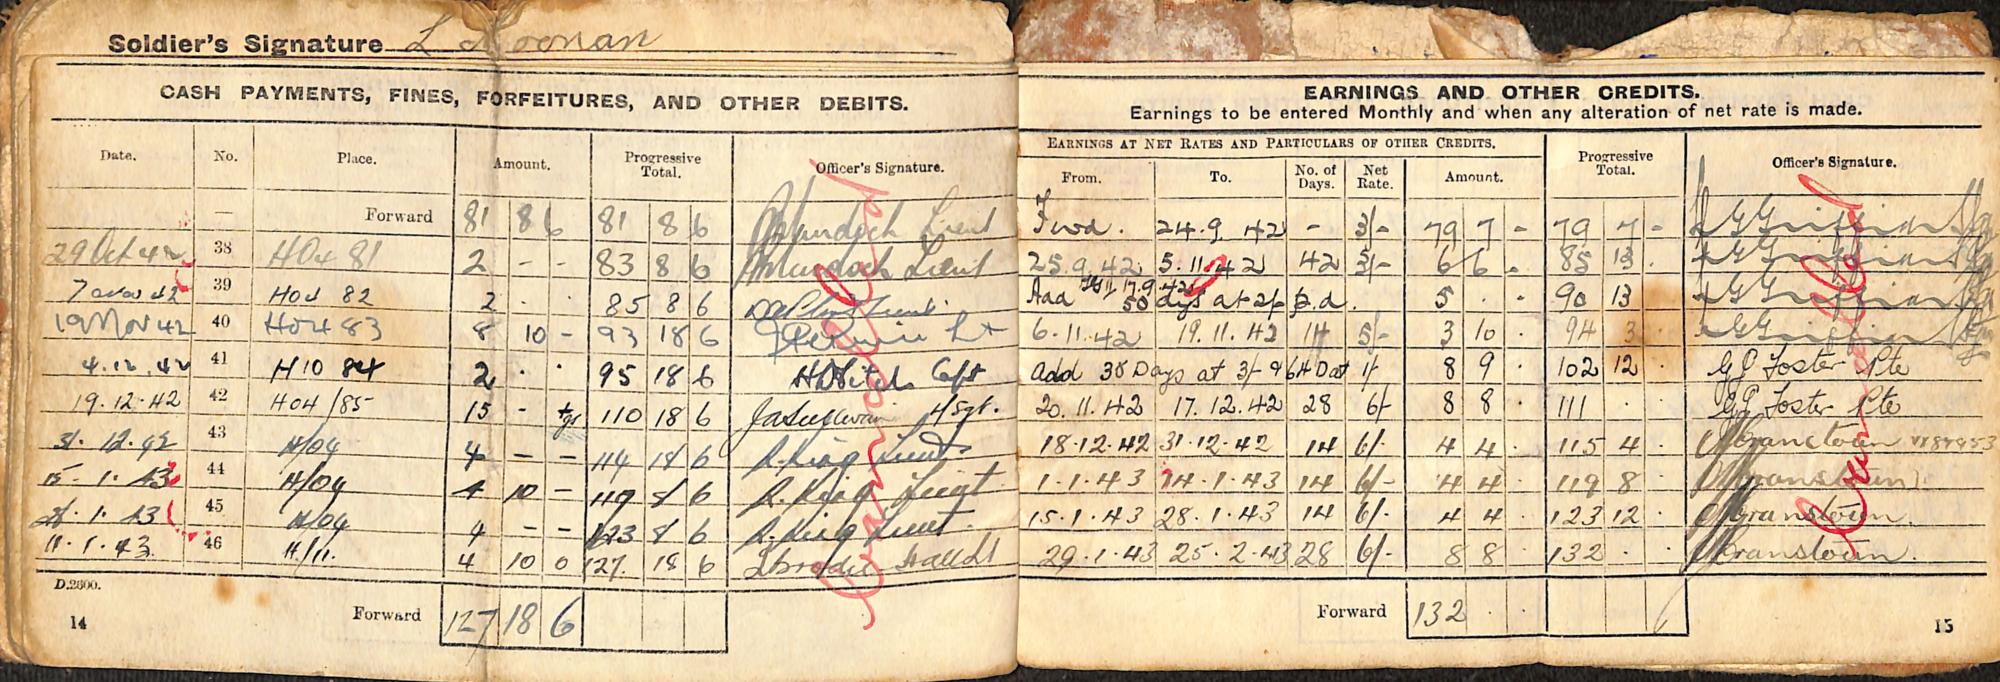 Soldier's Signature L Noonan
CASH PAYMENTS, FINES, FORFEITURES, AND OTHER DEBITS.
Date. No. Place. Amount. Progressive Total. Officer's Signature.
— Forward 81 8 6 81 8 6 Murdoch Lieut
29 Oct 42 38 H04 81 2 - - 83 8 6 Murdoch Lieut
7 Nov 42 39 H04 82 2 . . 85 8 6
19 Nov 42 40 H04 83 8 10 - 93 18 6 Lt
4.12.42 41 H10 84 2 . . 95 18 6 Capt
19.12.42 42 H04/85 15 - 110 18 6 JA Sullivan
31.12.42 43 H/04 4 - - 114 18 6 R. King Lieut
15.1.43 44 H/04 4 10 - 119 8 6 R. King Lieut
28.1.43 45 H/04 4 - - 123 8 6 R. King Lieut.
11.1.43. 46 H/11. 4 10 0 127. 18 6
D.2600.
Forward 127 18 6
14
Cancelled
EARNINGS AND OTHER CREDITS.
Earnings to be entered Monthly and when any alteration of net rate is made.
EARNINGS AT NET RATES AND PARTICULARS OF OTHER CREDITS.
From. To. No. of Days. Net Rate. Amount. Progressive Total. Officer's Signature.
Fwd. 24.9.42 - 3/- 79 7 - 79 7 - G Griffin
25.9.42 5.11.42 42 3/- 6 6 - 85 13 . G Griffin
Add 50 days at 2/- p.d. 5 . . 90 13 . G Griffin
6.11.42 19.11.42 14 5/- 3 10 . 94 3 . G Griffin
Add 38 Days at 3/- & 64 D at 1/- 8 9 . 102 12 . GJ Foster Pte
20.11.42 17.12.42 28 6/- 8 8 . 111 . . GJ Foster Pte
18.12.42 31.12.42 14 6/- 4 4 . 115 4 . Cranstoun
1.1.43 14.1.43 14 6/- 4 4 . 119 8 . Cranstoun
15.1.43 28.1.43 14 6/- 4 4 . 123 12 . Cranstoun.
29.1.43 25.2.43 28 6/- 8 8 . 132 . . Cranstoun.
Forward 132 . .
15
Cancelled